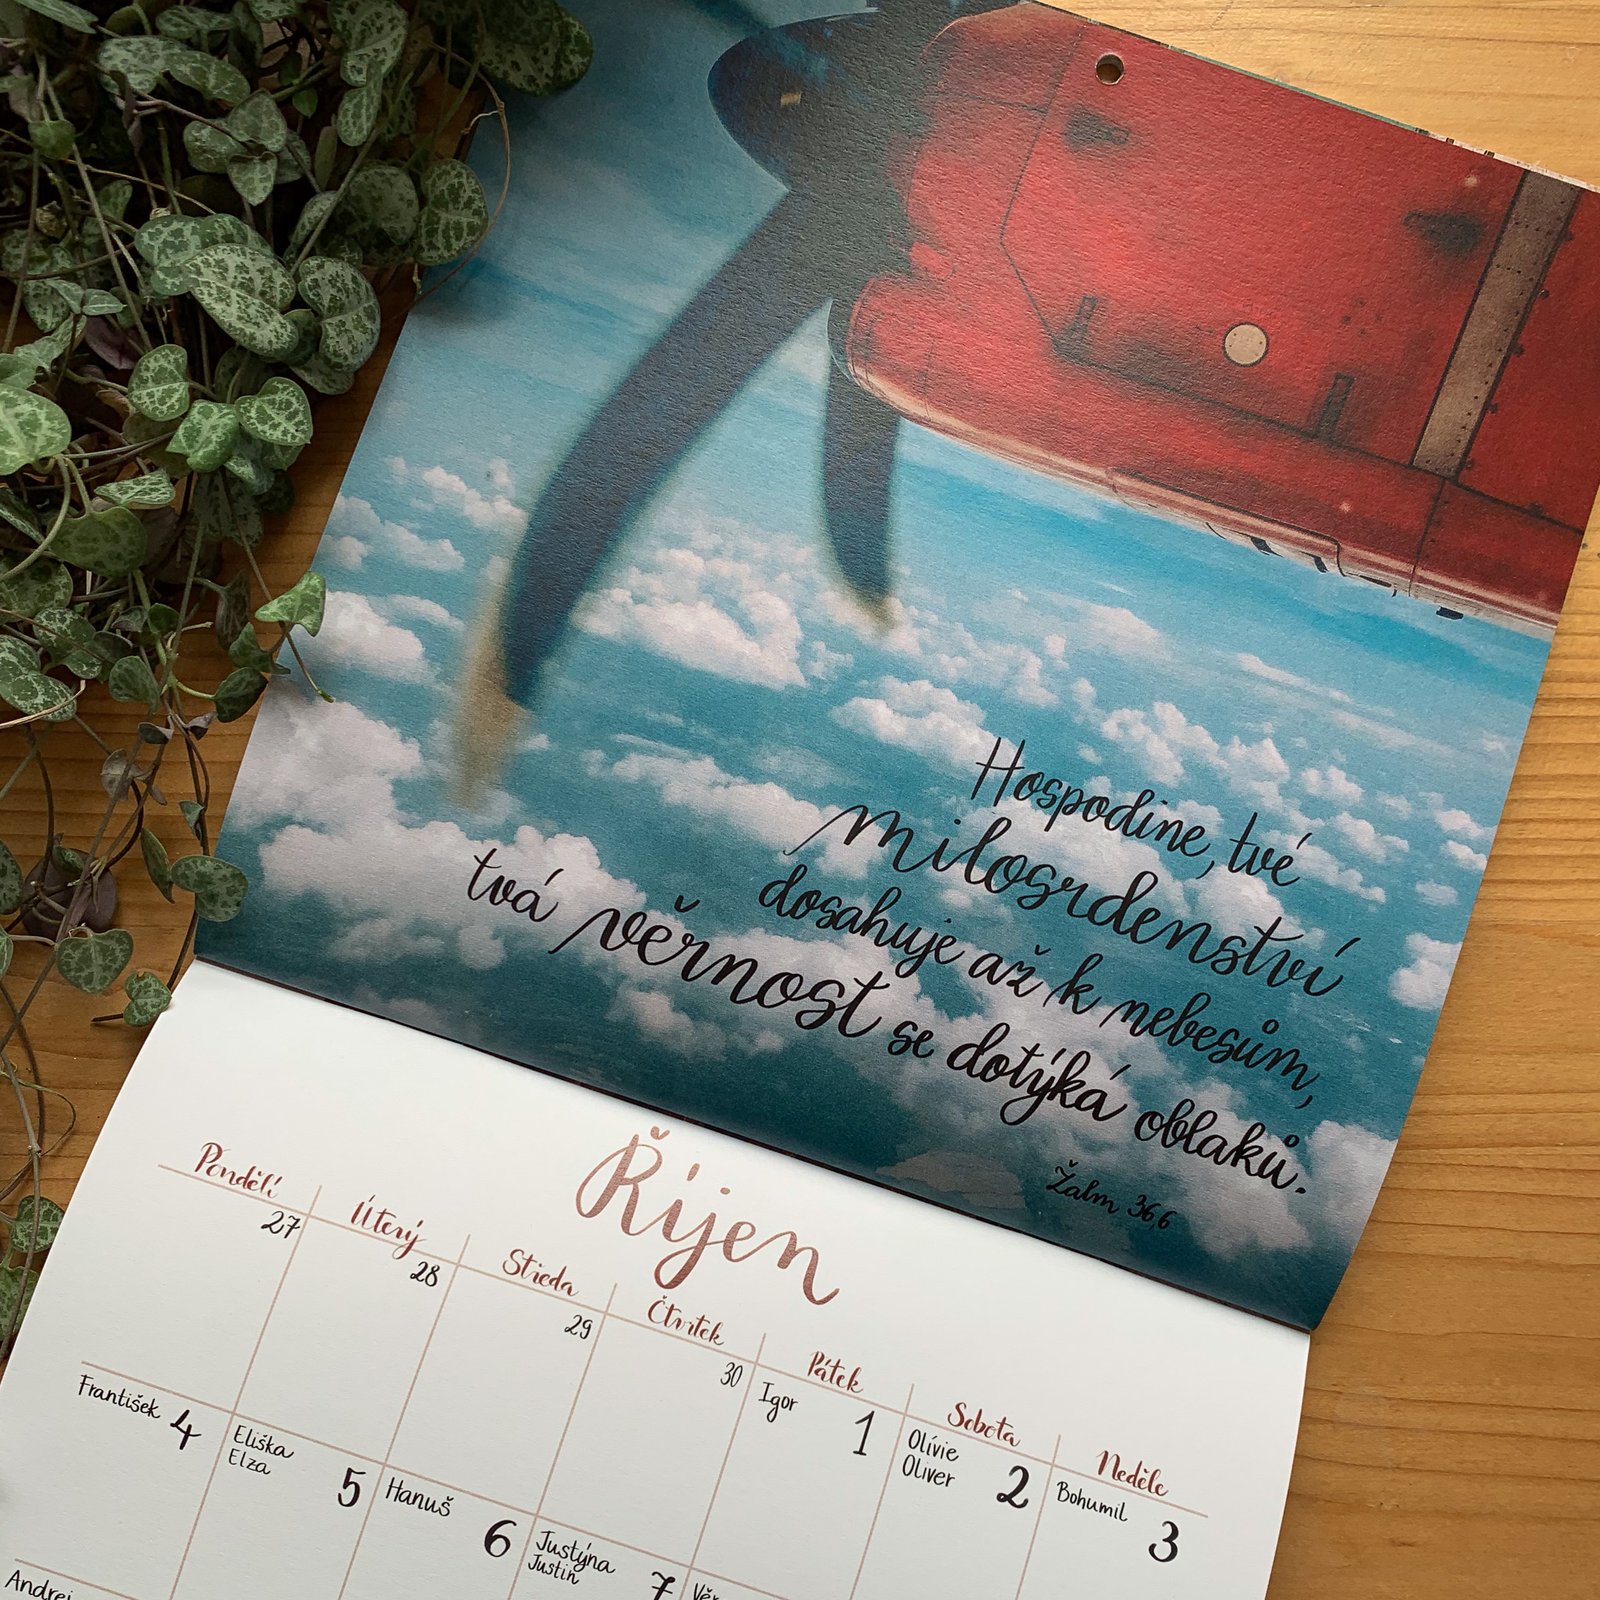 Hospodine, tvé
milosrdenství
dosahuje až k nebesům,
tvá věrnost se dotýká oblaků.
Žalm 36,6
Říjen
Pondělí Úterý Středa Čtvrtek Pátek Sobota Neděle
27 28 29 30 Igor 1 Olívie 2 Bohumil 3
Oliver
František 4 Eliška 5 Hanuš 6 Justýna 7
Elza Justin
Andrej